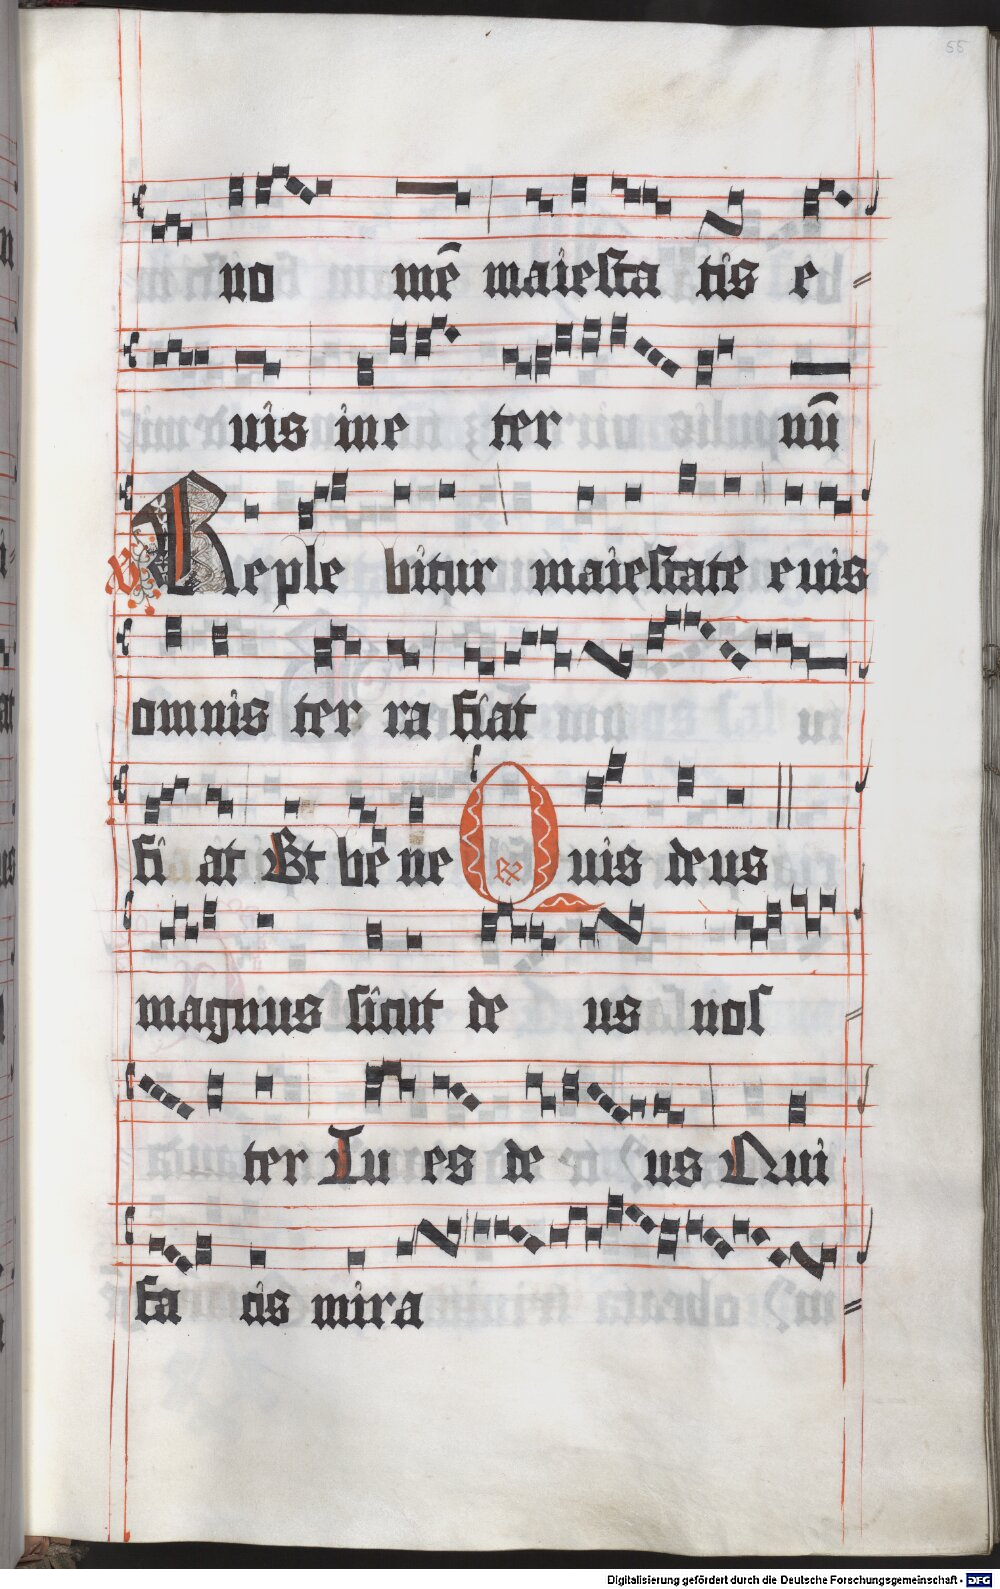 55
no mē maiesta tis e⸗
uis in e ter nū
V Reple bitur maiestate euis
omnis ter ra fiat
fi at Et bē ne R Quis deus
magnus sicut de us nos⸗
ter Tu es de us Qui
fa cis mira⸗
Digitalisierung gefördert durch die Deutsche Forschungsgemeinschaft - DFG